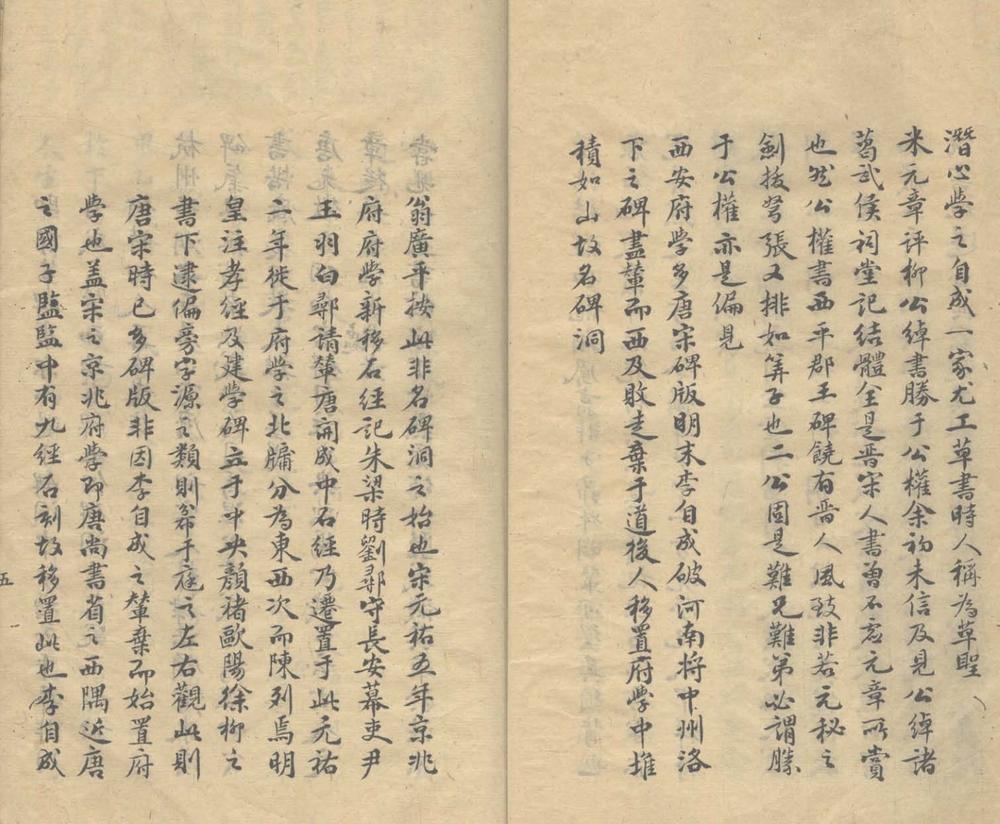 潛心學之自成一家尤工草書時人稱為草聖
米元章評柳公綽書勝于公權余初未信及見公綽諸
葛武侯祠堂記結體全是晋宋人書曽不亥元章所賞
也然公權書西平郡王碑饒有晋人風致非若元秘之
劍拔弩張又排如筭子也二公固是難兄難弟必謂勝
于公權亦是偏見
西安府學多唐宋碑版明末李自成破河南将中州洛
下之碑盡輦而西及敗走棄于道後人移置府學中堆
積如山故名碑洞
翁廣平按此非名碑洞之始也宋元祐五年京兆
府府學新移石經記朱梁時劉鄩守長安幕吏尹
玉羽白鄩請輦唐開成中石經乃遷置于此元祐
二年徙于府學之北牗分為東西次而陳列焉明
皇注孝經及建學碑立于中央顏褚歐陽徐柳之
書下逮偏旁字源之類則分布于庭之左右觀此則
唐宋時已多碑版非因李自成之輦棄而始置府
學也盖宋之京兆府學即唐尚書省之西隅近唐
之國子監監中有九經石刻故移置此也李自成
五